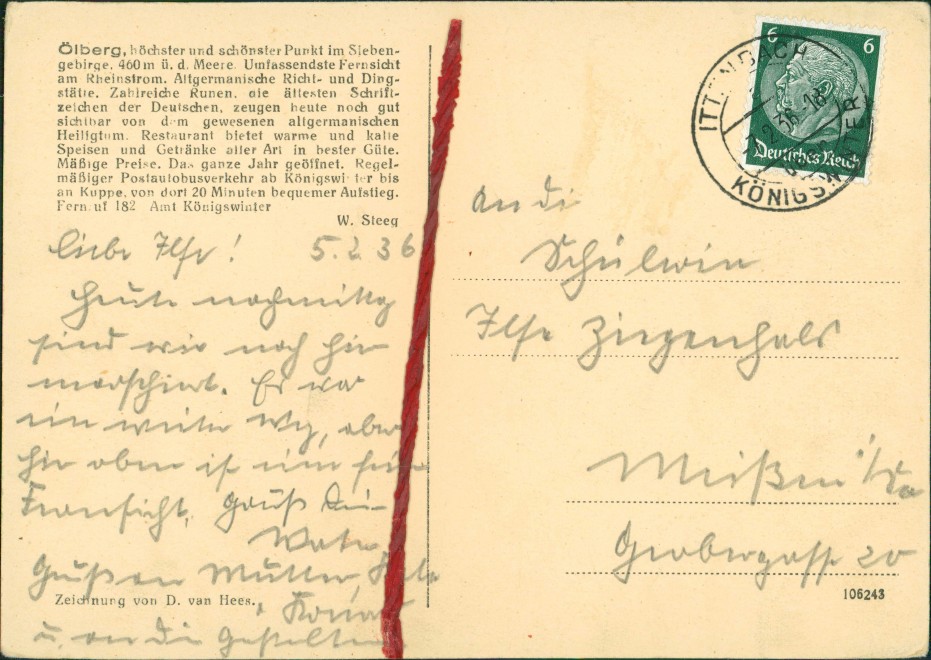 Ölberg, höchster und schönster Punkt im Sieben-
gebirge. 460 m ü. d. Meere. Umfassendste Fernsicht
am Rheinstrom. Altgermanische Richt- und Ding-
stätte. Zahlreiche Runen, die ältesten Schrift-
zeichen der Deutschen, zeugen heute noch gut
sichtbar von dem gewesenen altgermanischen
Heiligtum. Restaurant bietet warme und kalte
Speisen und Getränke aller Art in bester Güte.
Mäßige Preise. Das ganze Jahr geöffnet. Regel-
mäßiger Postautobusverkehr ab Königswinter bis
an Kuppe, von dort 20 Minuten bequemer Aufstieg.
Fernruf 182 Amt Königswinter
W. Steeg
Liebe Ilse! 5.2.36
Heute nachmittag
sind wir nach hier
marschiert. Es war
ein weiter Weg, aber
hier oben ist eine feine
Fernsicht. Gruß Dein
Vater
Grüße an Mutter,
u. an die
Zeichnung von D. van Hees.
6 6
Deutsches Reich
ITTENBACH
KÖNIGSWINTER
An di
Schülerin
Ilse Ziegenhals
Meißen
20
106243